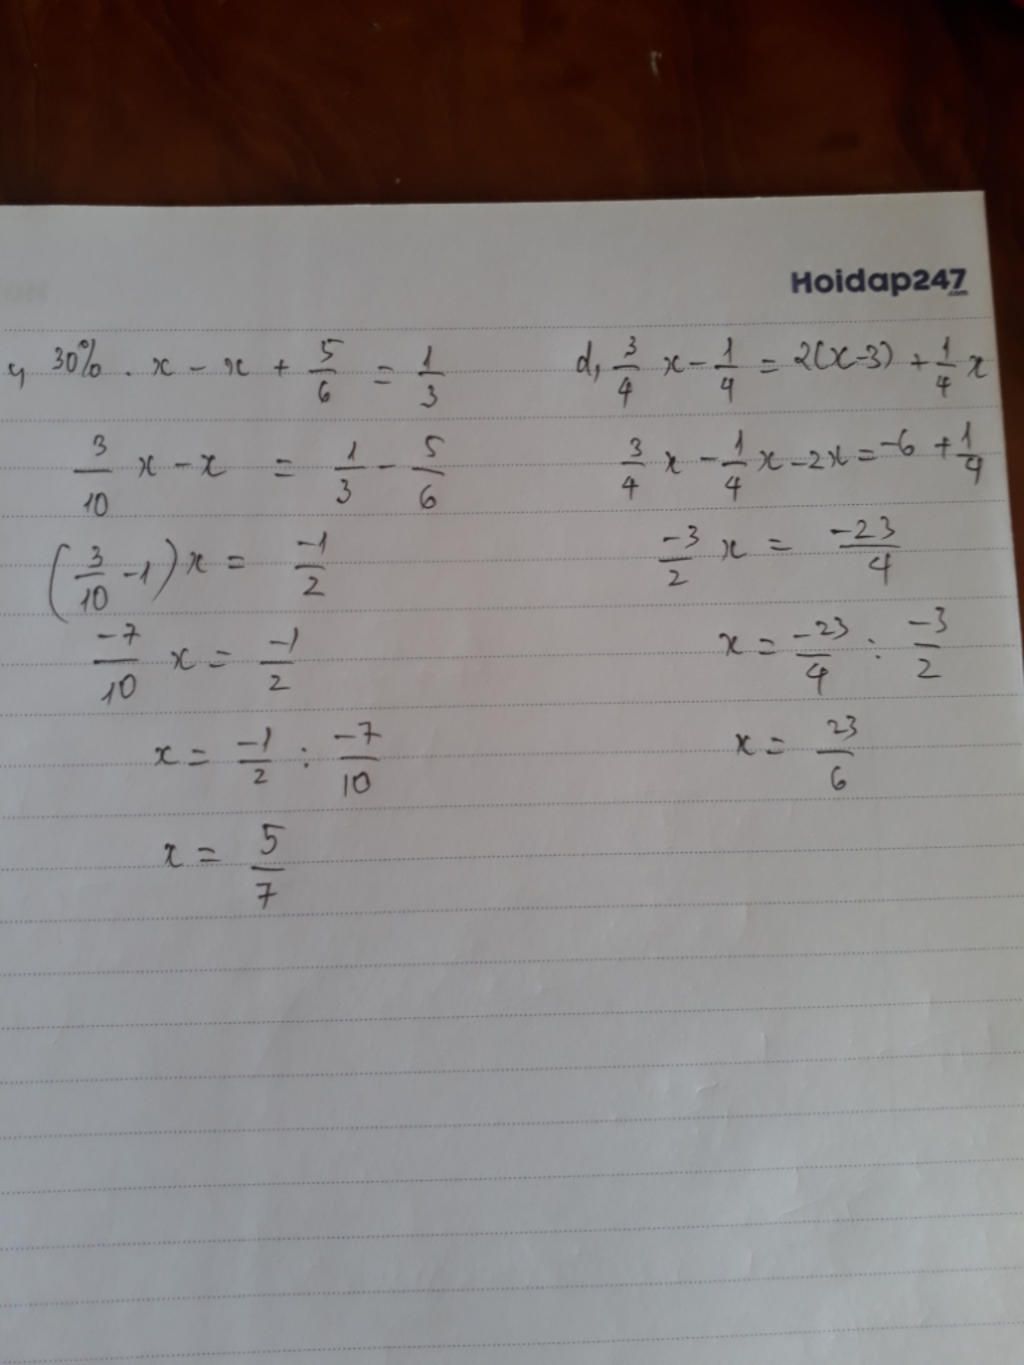 Hoidap247
.com
c, 30% . x - x + 5/6 = 1/3
3/10 x - x = 1/3 - 5/6
(3/10 - 1) x = -1/2
-7/10 x = -1/2
x = -1/2 : -7/10
x = 5/7
d, 3/4 x - 1/4 = 2(x-3) + 1/4 x
3/4 x - 1/4 x - 2x = -6 + 1/4
-3/2 x = -23/4
x = -23/4 : -3/2
x = 23/6